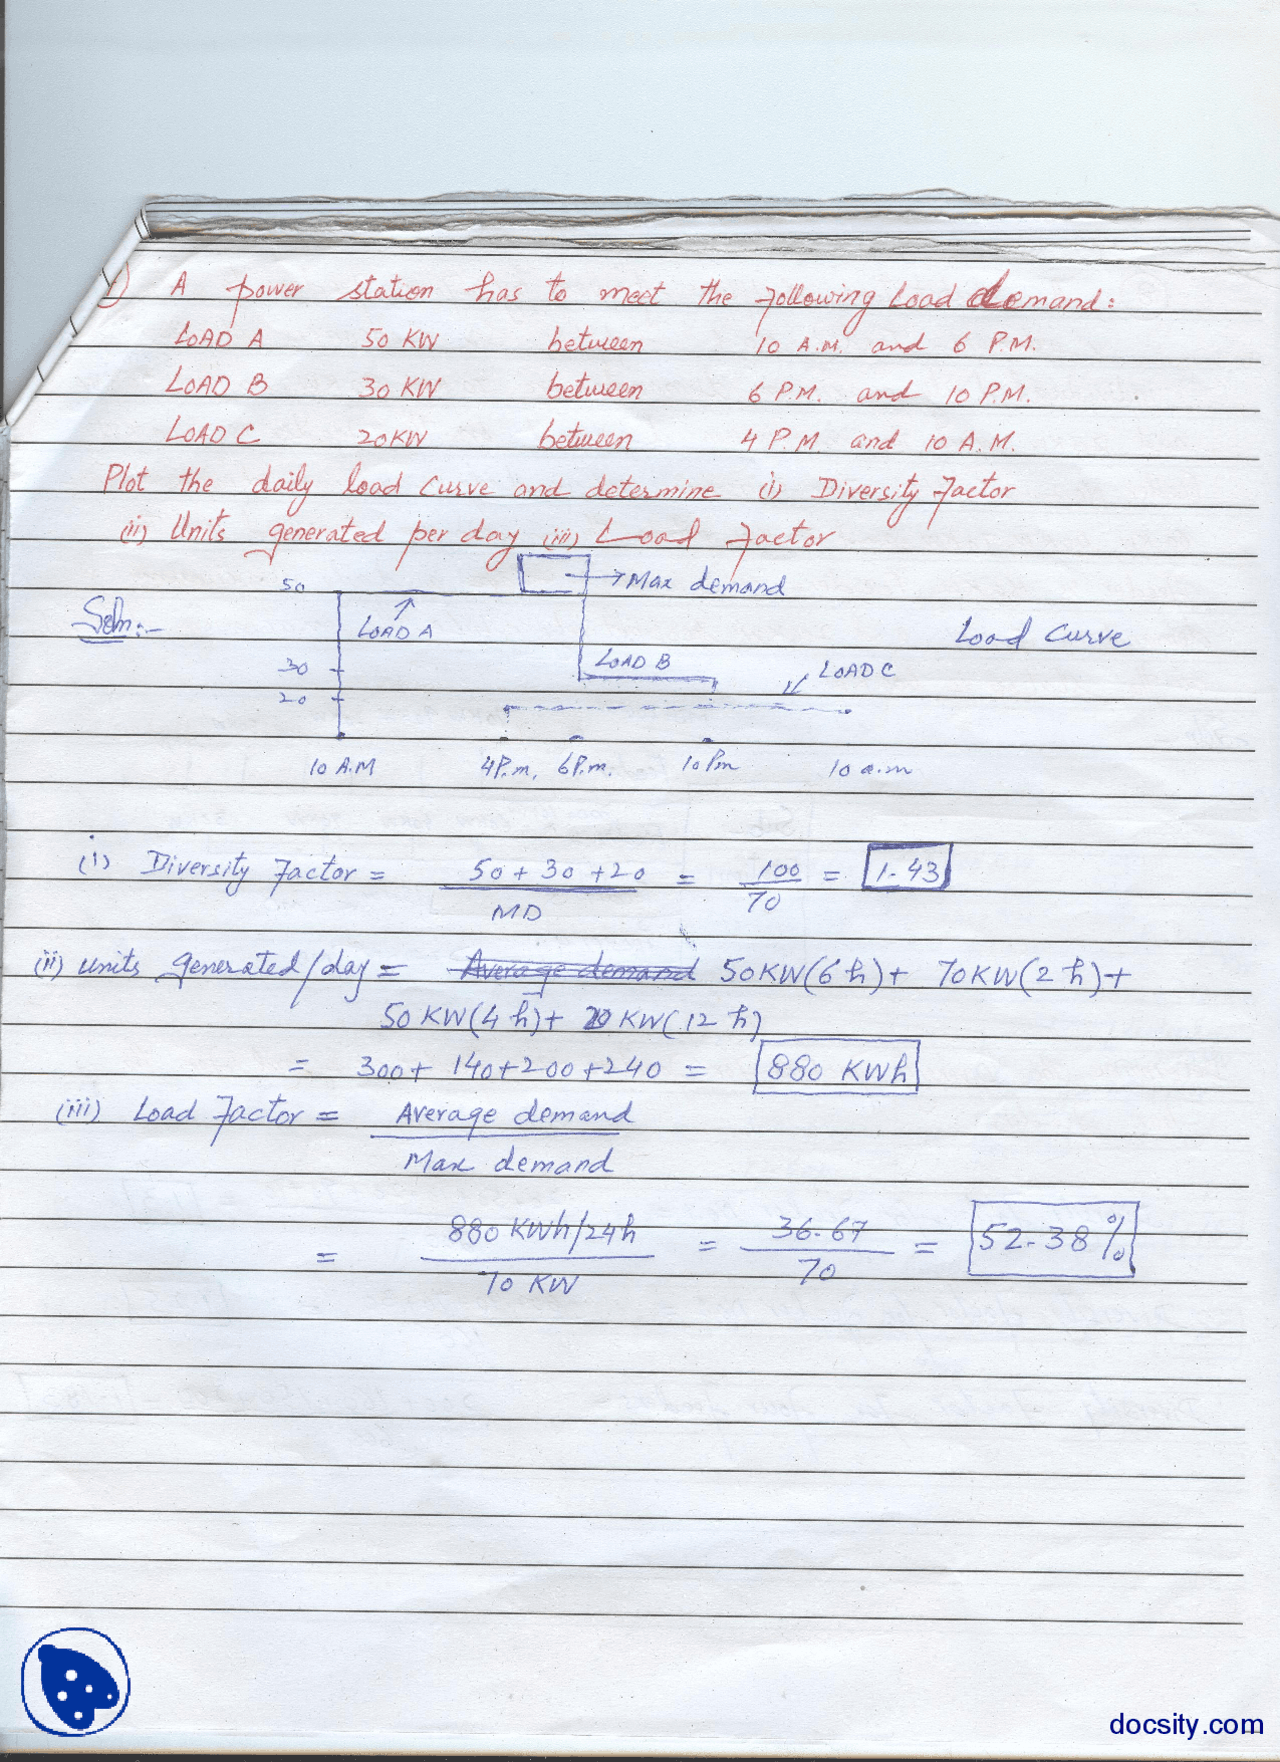 1) A power station has to meet the following load demand:
LOAD A 50 KW between 10 A.M. and 6 P.M.
LOAD B 30 KW between 6 P.M. and 10 P.M.
LOAD C 20KW between 4 P.M. and 10 A.M.
Plot the daily load curve and determine (i) Diversity Factor
(ii) Units generated per day (iii) Load Factor
50 → Max demand
Soln:-
LOAD A
Load Curve
30 LOAD B
LOAD C
20
10 A.M 4P.m. 6P.m. 10 Pm 10 a.m
(i) Diversity Factor = 50 + 30 + 20 / MD = 100 / 70 = 1.43
(ii) Units generated/day = Average demand 50KW(6h) + 70KW(2h) +
50KW(4h) + 20KW(12h)
= 300 + 140 + 200 + 240 = 880 KWh
(iii) Load Factor = Average demand / Max demand
= 880 KWh/24h / 70 KW = 36.67 / 70 = 52.38%
docsity.com